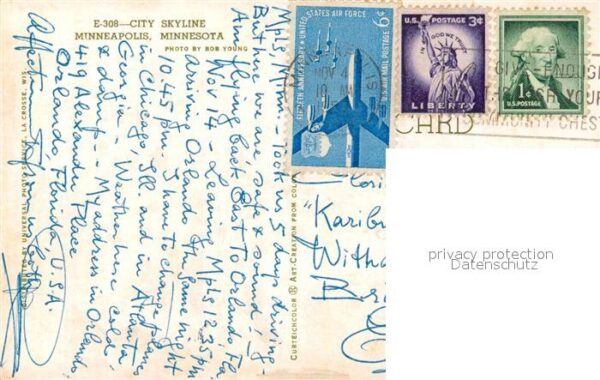 E-308—CITY SKYLINE
MINNEAPOLIS, MINNESOTA
PHOTO BY BOB YOUNG
Mpls, Minn - Took us 5 days driving-
But here are safe & sound! I
Am flying back East To Orlando Fla
Nov 14 - Leaving Mpls 12.35 pm
Arrive Orlando same night
10.45 pm. I have to change planes
in Chicago, Ill and in Atlanta
Georgia - Weather here cold
& damp - My address in Orlando
419 Alexander Place
Orlando, Florida, U.S.A.
DISTRIBUTED BY UNIVERSAL PHOTO SERVICE, LA CROSSE, WIS.
CURTEICHCOLOR ® ART-CREATION FROM COLOR
FIFTIETH ANNIVERSARY • UNITED STATES AIR FORCE
6¢
U.S. AIR MAIL POSTAGE
NOV 4
U.S. POSTAGE 3¢
IN GOD WE TRUST
LIBERTY
1¢
U.S. POSTAGE
GIVE ENOUGH
YOUR
COMMUNITY CHEST
CARD
"Karib
Witha
privacy protection
Datenschutz